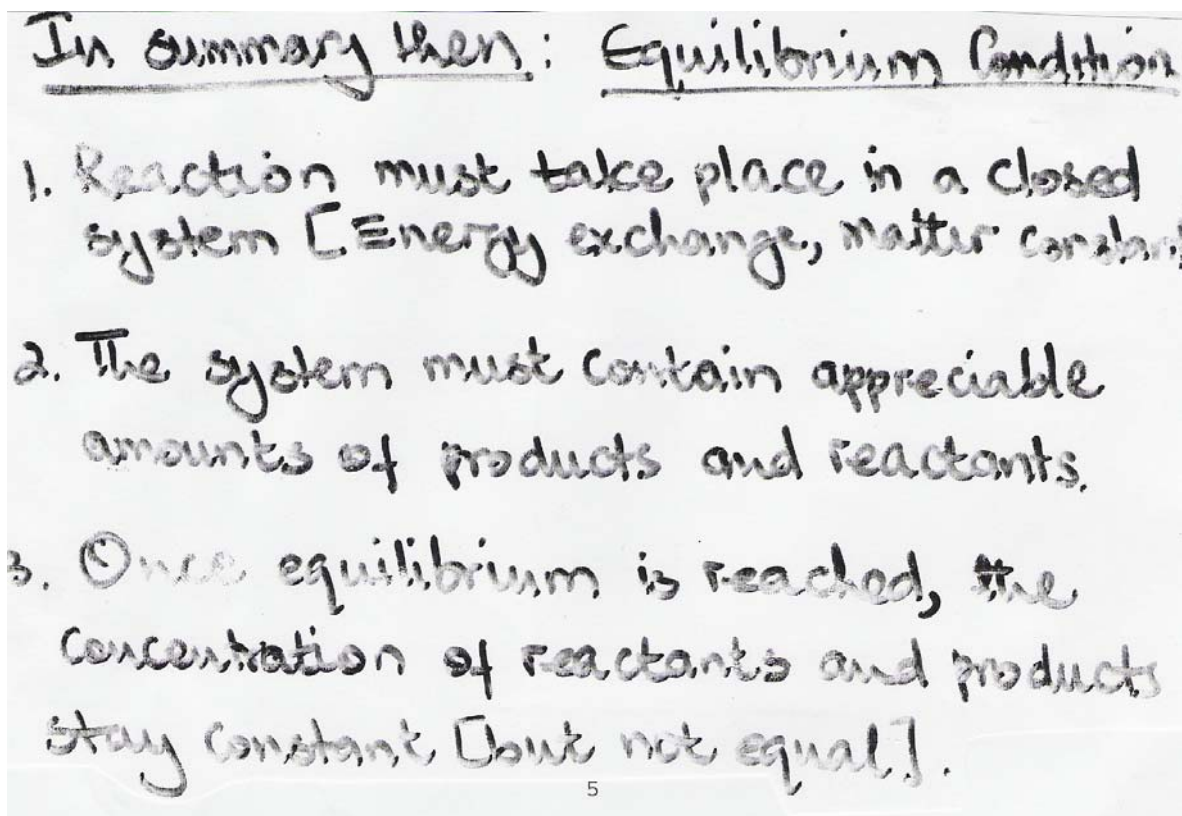 In summary then: Equilibrium Condition
1. Reaction must take place in a closed
system [Energy exchange, matter constant
2. The system must contain appreciable
amounts of products and reactants.
3. Once equilibrium is reached, the
concentration of reactants and products
stay constant [but not equal].
5